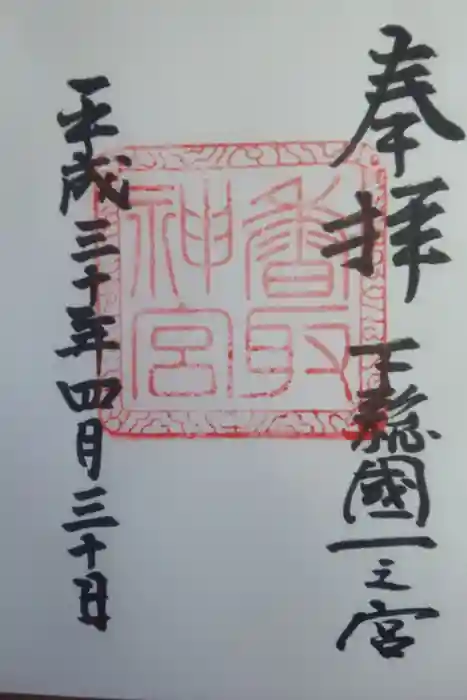 奉拝
下総國一之宮
香取
神宮
平成三十年四月三十日